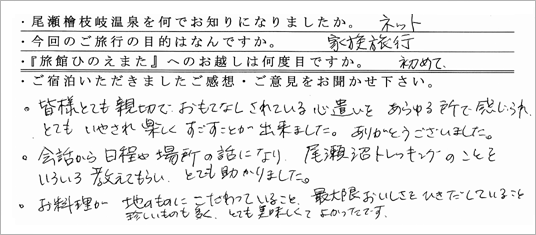 ・尾瀬檜枝岐温泉を何でお知りになりましたか。 ネット
・今回のご旅行の目的はなんですか。 家族旅行
・『旅館ひのえまた』へのお越しは何度目ですか。 初めて
・ご宿泊いただきましたご感想・ご意見をお聞かせ下さい。
。皆様とても親切で おもてなしされている心遣いを あらゆる所で感じられ、
とてもいやされ楽しくすごすことが出来ました。ありがとうございました。
。会話から日程や場所の話になり、尾瀬沼トレッキングのことを
いろいろ教えてもらい、とても助かりました。
。お料理が 地のものにこだわっていること、最大限おいしさをひきだしていること
珍しいものも多く、とても美味しくてよかったです。